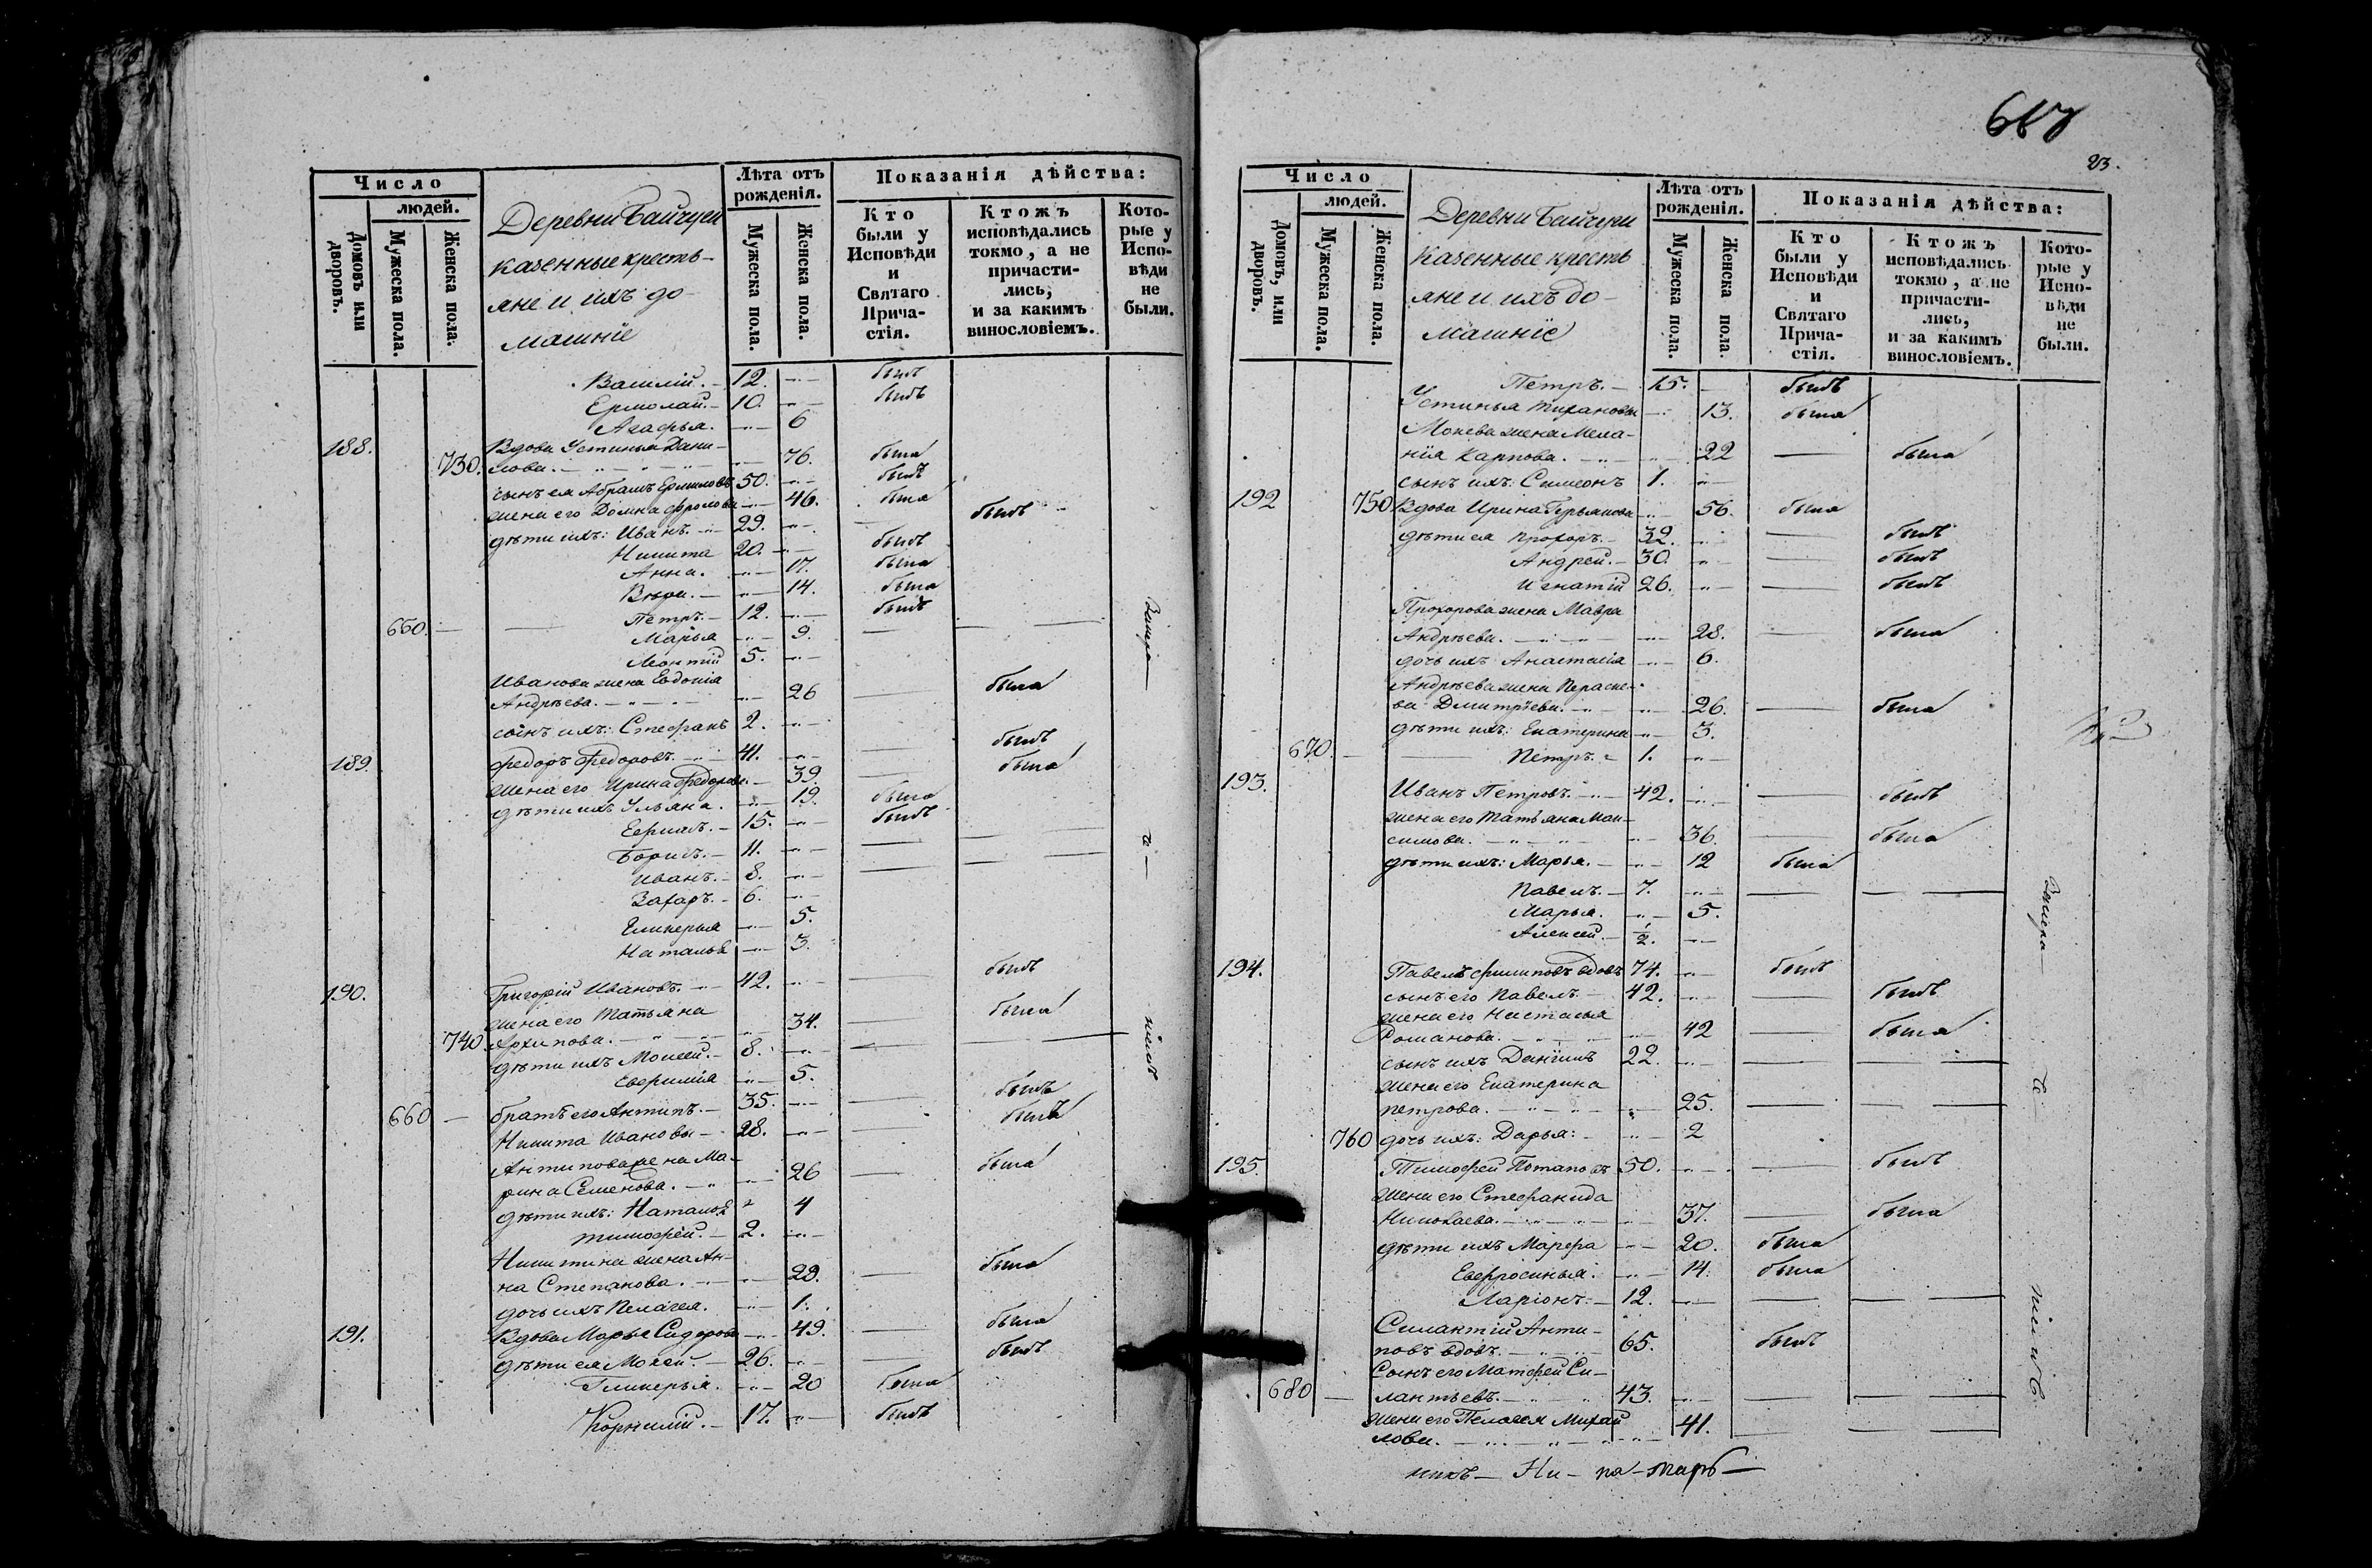 Число
людей.
Домовъ или дворовъ.
Мужеска пола.
Женска пола.
Деревни Байчуги
казенные кресть-
яне и ихъ до-
машніе
Лѣта отъ
рожденія.
Мужеска пола.
Женска пола.
Показанія дѣйства:
Кто
были у
Исповѣди
и
Святаго
Прича-
стія.
Ктожъ
исповѣдались
токмо, а не
причасти-
лись,
и за какимъ
винословіемъ.
Кото-
рые у
Испо-
вѣди
не
были.
Василій. 12. былъ
Ермолай. 10. былъ
Агафья. 6
188. Вдова Устинья Дани-
730. лова. 76. была
сынъ ея Абрамъ Ермиловъ 50. былъ
жена его Домна Фролова 46. была
дѣти ихъ: Иванъ. 29. былъ
Никита 20. былъ
Анна. 17. была
Вѣра. 14. была
650. Петръ. 12. былъ
Марья 9.
Леонтій 5.
Иванова жена Евдокія
Андрѣева. 26 была
сынъ ихъ: Стефанъ 2.
189. Федоръ Федоровъ. 41. былъ
жена его Ирина Федорова 39. была
дѣти ихъ Ульяна. 19. была
15. былъ
Борисъ. 11.
Иванъ. 8.
Захаръ. 6.
Гликерья 5.
Наталья 3.
190. Григорій Ивановъ. 42. былъ
жена его Татьяна
740 Архипова. 34. была
дѣти ихъ Моисей. 8.
Евфимія 5.
660 братъ его Антипъ. 35. былъ
Никита Ивановы 28. былъ
Антипова жена Ма-
рина Семенова. 26 была
дѣти ихъ: Наталья 4
Тимофей. 2.
Никитина жена Ан-
на Степанова. 29. была
дочь ихъ Пелагея. 1.
191. Вдова Марья Сидорова 49. была
дѣти ея Мокей. 26. былъ
Гликерья. 20 была
Корнилій. 17. былъ
23.
Число
людей.
Домовъ, или дворовъ.
Мужеска пола.
Женска пола.
Деревни Байчуги
Казенные кресть
яне и ихъ до-
машніе
Лѣта отъ
рожденія.
Мужеска пола.
Женска пола.
Показанія дѣйства:
Кто
были у
Исповѣди
и
Святаго
Прича-
стія.
Ктожъ
исповѣдались
токмо, а не
причасти-
лись,
и за какимъ
винословіемъ.
Кото-
рые у
Испо-
вѣди
не
были.
Петръ. 15. былъ
Устинья Тихановы 13. была
Мокева жена Мела-
нія Карпова. 22 была
сынъ ихъ: Симеонъ 1.
192 750 Вдова Ирина Гурьянова 56. была
дѣти ея Прохоръ. 32. былъ
Андрей. 30. былъ
Игнатій 26. былъ
Прохорова жена Мавра
Андрѣева. 28. была
дочь ихъ Анастасія 6.
Андрѣева жена Параске-
ва Дмитріева. 26. была
дѣти ихъ: Екатерина 3.
670. Петръ. 1.
193. Иванъ Петровъ. 42. былъ
жена его Татьяна Мак-
симова. 36. была
дѣти ихъ: Марья. 12 была
Павелъ. 7.
Марья. 5.
Алексей. 1/2.
194. Павелъ Филиповъ вдовъ 74. былъ
сынъ его Павелъ 42. былъ
жена его Настасья
Романова. 42 была
сынъ ихъ Даніилъ 22.
жена его Екатерина
Петрова. 25.
760 дочь ихъ: Дарья: 2
195. Тимофей Потаповъ 50. былъ
жена его Стефанида
Николаева. 37. была
дѣти ихъ Марфа 20. была
Евфросинья. 14. была
Ларіонъ. 12.
Силантій Анти-
повъ вдовъ. 65. былъ
Сынъ его Матфей Си-
680 лантьевъ. 43.
жена его Пелагея Михай
лова. 41.